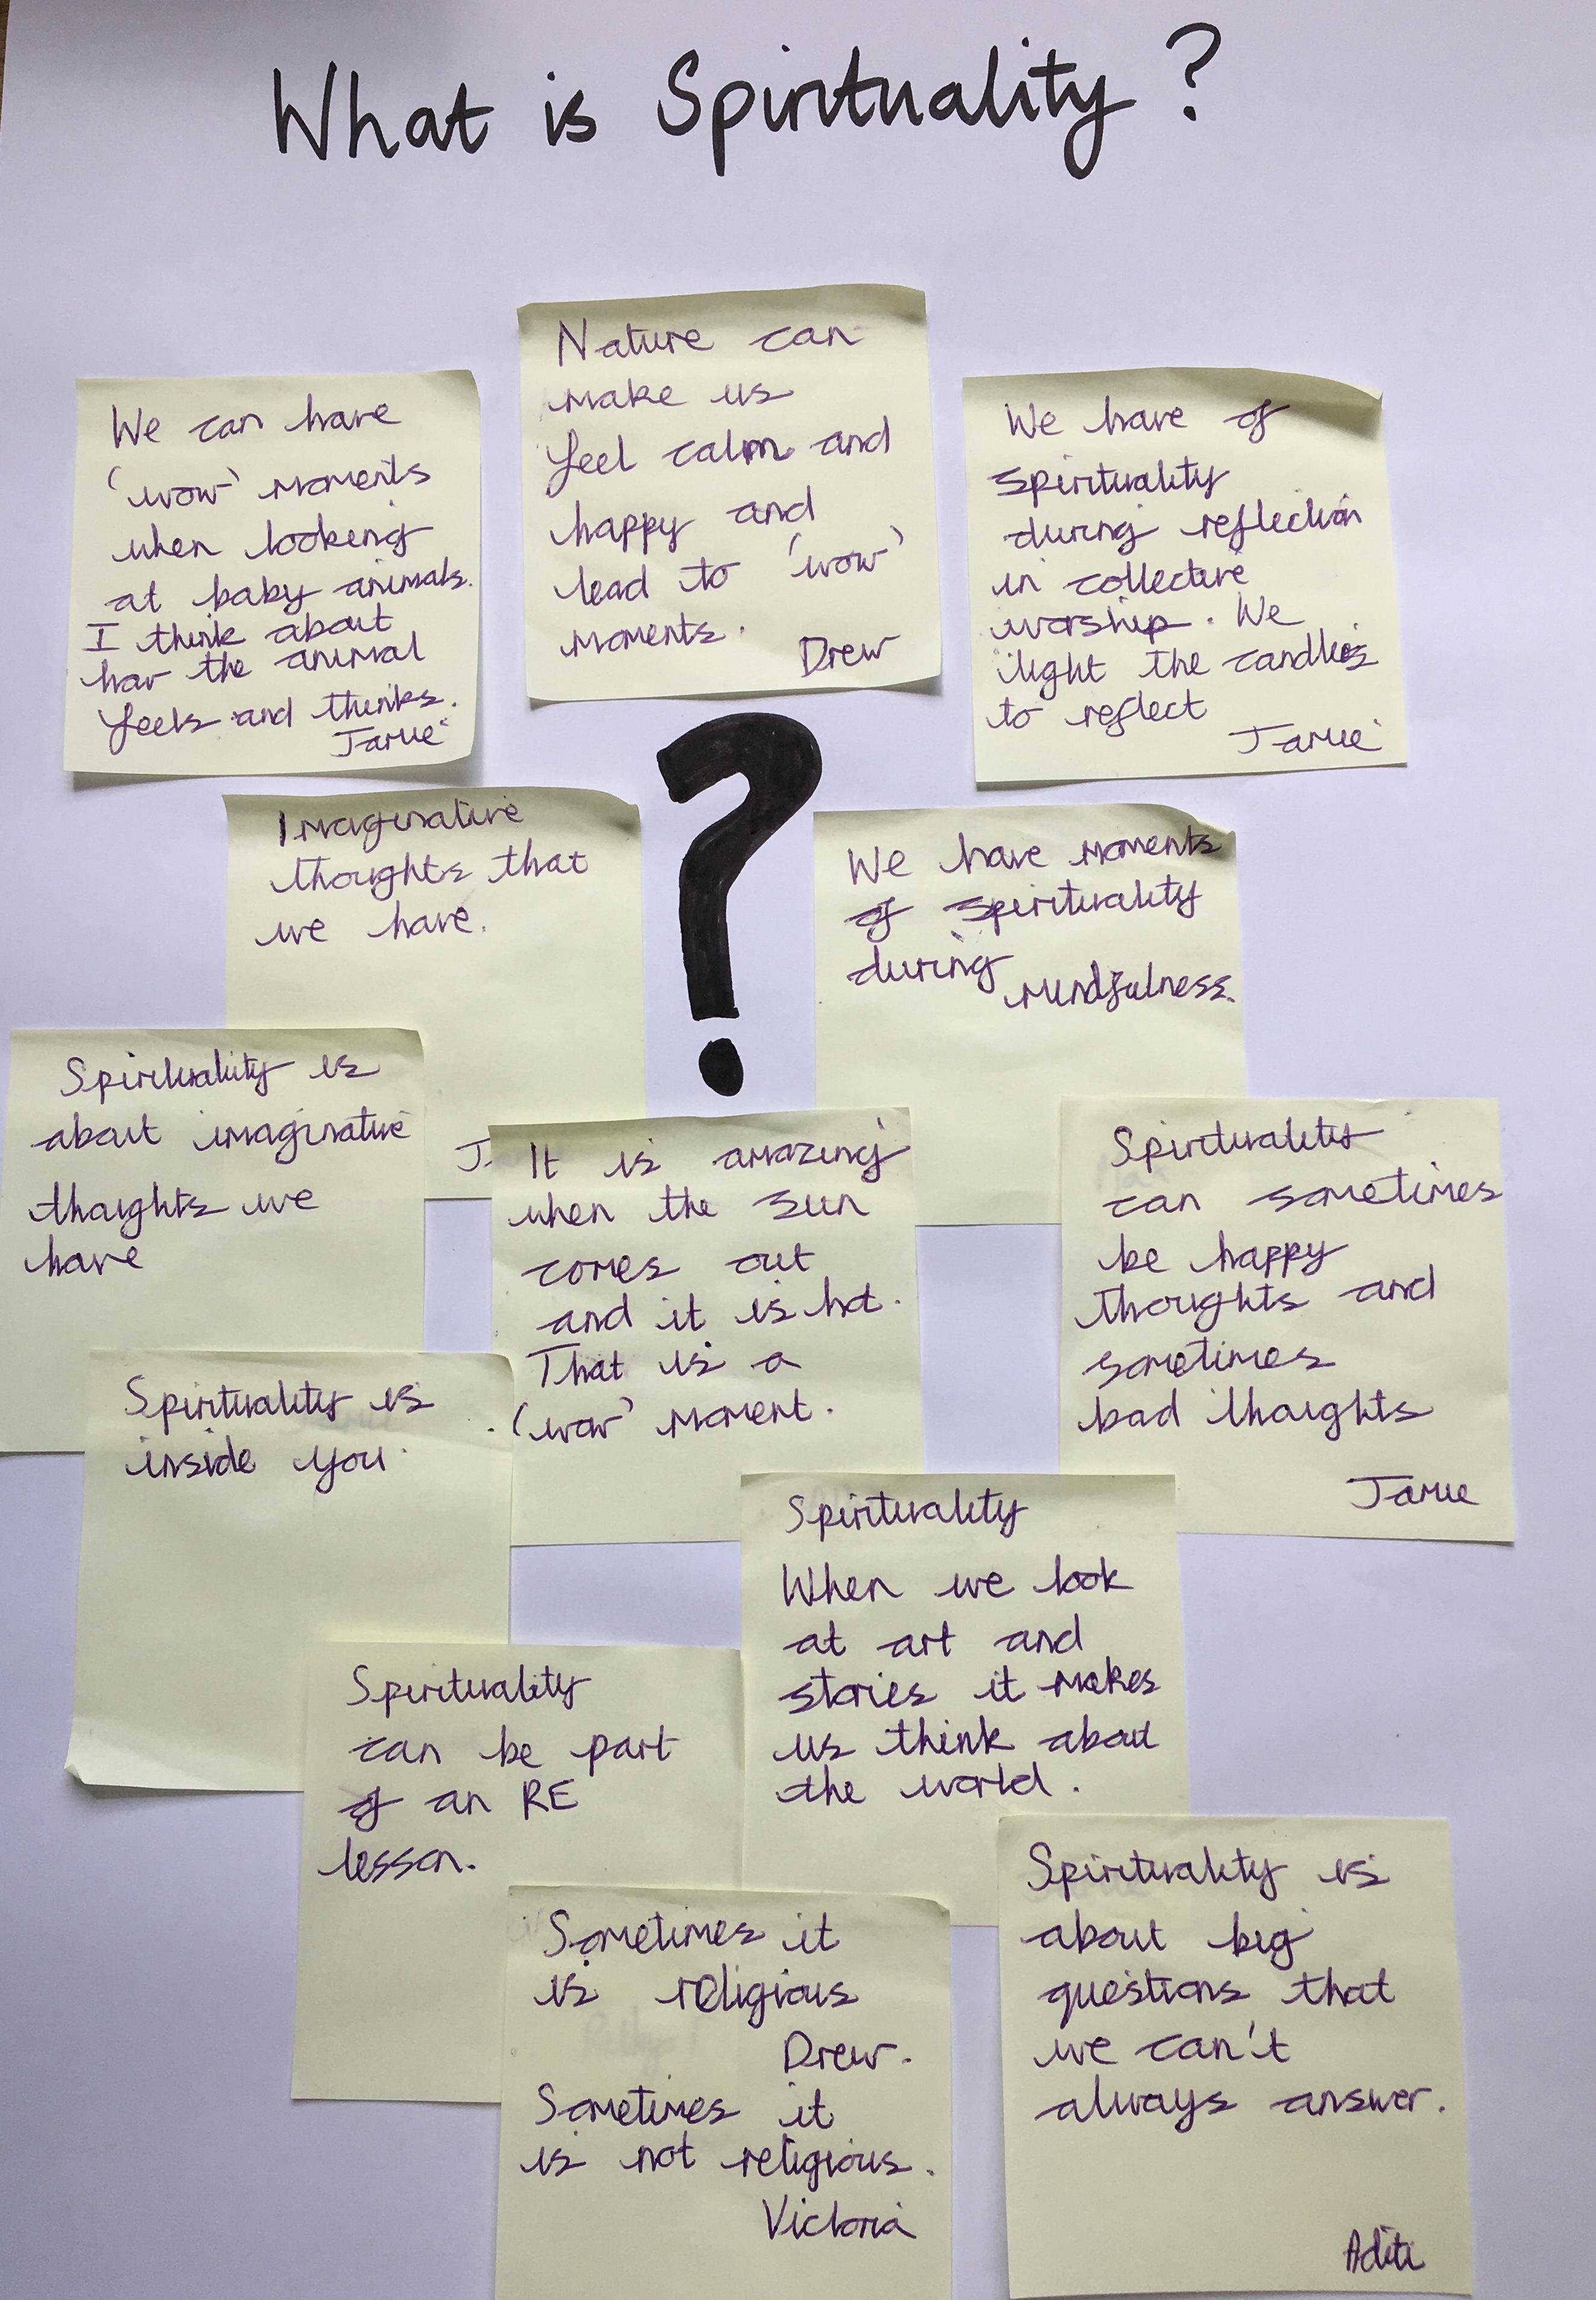 What is Spirituality?
Nature can
make us
feel calm and
happy and
lead to 'wow'
moments.
Drew
We can have
'wow' moments
when looking
at baby animals.
I think about
how the animal
feels and thinks.
Jamie
We have of
spirituality
during reflection
in collective
worship. We
light the candles
to reflect
Jamie
?
Imaginative
thoughts that
we have.
J
We have moments
of spirituality
during
mindfulness.
Spirituality is
about imaginative
thoughts we
have
It is amazing
when the sun
comes out
and it is hot.
That is a
'wow' moment.
Spirituality
can sometimes
be happy
thoughts and
sometimes
bad thoughts
Jamie
Spirituality is
inside you.
Spirituality
When we look
at art and
stories it makes
us think about
the world.
Spirituality
can be part
of an RE
lesson.
Sometimes it
is religious
Drew.
Sometimes it
is not religious.
Victoria
Spirituality is
about big
questions that
we can't
always answer.
Aditi